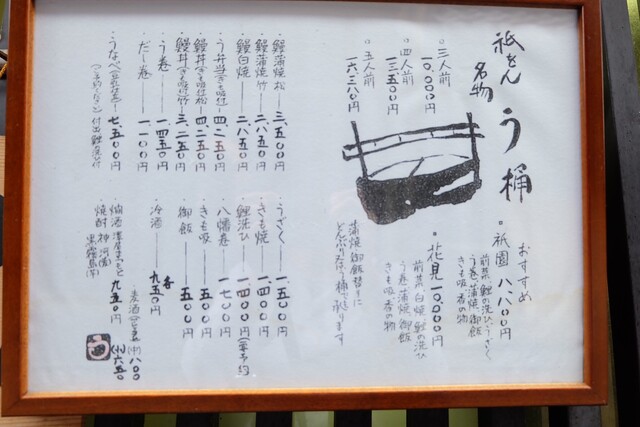 祇をん
う桶
名物
○三人前
一〇、〇〇〇円
○四人前
一三、五〇〇円
○五人前
一六、三八〇円
おすすめ
祇園 八、八〇〇円
前菜 鰻の洗ひ うざく
う巻 蒲焼 御飯
きも吸 香の物
花見 一〇、〇〇〇円
前菜 白焼 鰻の洗ひ
う巻 蒲焼 御飯
きも吸 香の物
蒲焼 御飯替りに
どんぶり又は桶で承ります
鰻蒲焼 松 三、五〇〇円
鰻蒲焼 竹 二、八五〇円
鰻白焼 二、八五〇円
う弁当 きも吸付 四、二五〇円
鰻丼 きも吸付 松 四、二五〇円
鰻丼 きも吸付 竹 三、二五〇円
う巻 一、四五〇円
だし巻 一、一〇〇円
うなべ 七、五〇〇円
付出 鰻洗ひ付
うざく 一、五〇〇円
きも焼 一、四〇〇円
鰻洗ひ 一、四〇〇円（要予約
八幡巻 一、七〇〇円
きも吸 五〇〇円
御飯 五〇〇円
冷酒 各九五〇円
麦酒 （中）八〇〇
（小）六五〇
焼酎 神河内
黒霧島（芋）
九五〇円